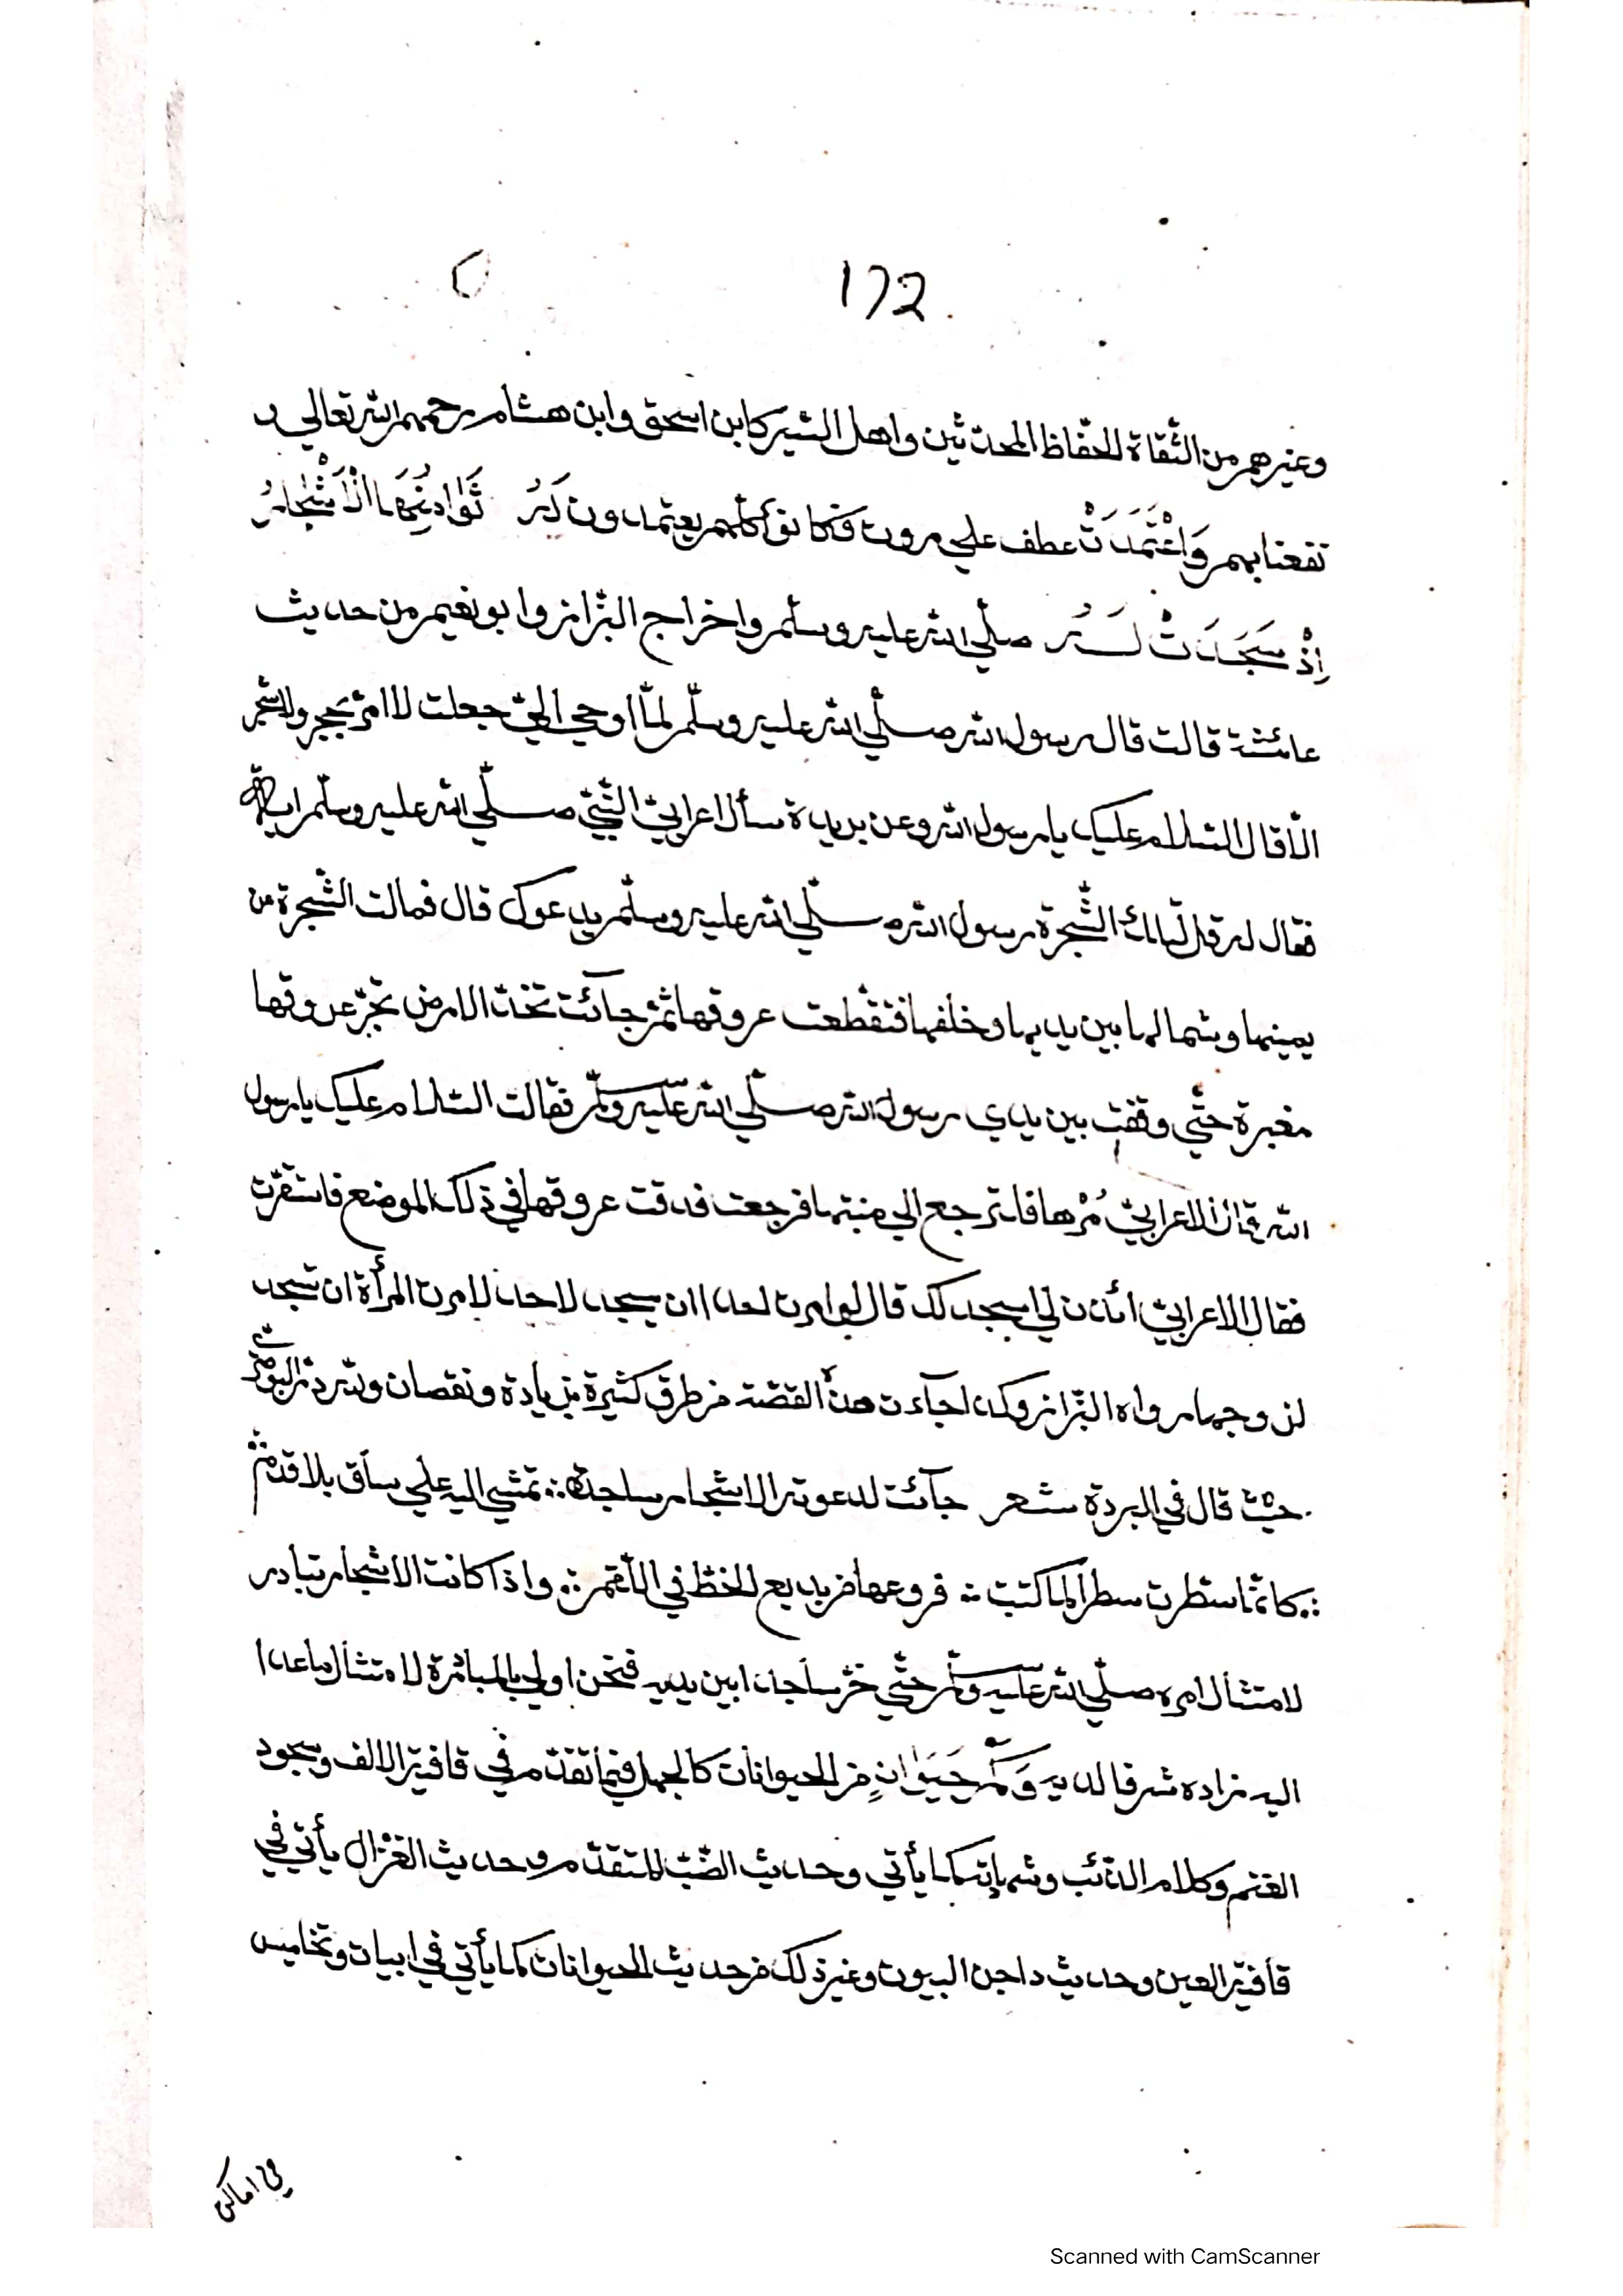 172
وغيرهم من الثّقاة الحفّاظ المحدثين واهل السّير كابن اسحق وابن هشام رحمهم الله تعالي و
نفعنا بهم وَاعْتَمَدَتْ عطف علي مروت فكانوا كلّهم يعتمدون لَهُ الْاَشْجَارُ
اِذْ سَجَدَتْ لَهُ صلّي الله عليه وسلّم واخراج البزّاز وابو نعيم من حديث
عائشة قالت قال رسول الله صلّي الله عليه وسلّم لمّا اوحي اليّ جعلت لا امرّ بحجر ولا شجر
الّا قال السّلام عليك يا رسول الله وعن بريدة سأل اعرابيّ النّبيّ صلّي الله عليه وسلّم اية
فقال له قل لتلك الشّجرة رسول الله صلّي الله عليه وسلّم يدعوك قال فمالت الشّجرة من
يمينها وشمالها بين يديها وخلفها فتقطّعت عروقها ثمّ جائت تخدّ الارض تجرّ عروقها
مغبرة حتّي وقفت بين يدي رسول الله صلّي الله عليه وسلّم فقالت السّلام عليك يا رسول
الله قال الاعرابيّ مُرْها فلترجع الي منبتها فرجعت فدقت عروقها في ذلك الموضع فاستقرّت
فقال الاعرابيّ ائذن لي اسجد لك قال لو امرت احدا ان يسجد لاحد لامرت المرأة ان تسجد
لزوجها رواه البزّاز وكذا جآءت هذه القصّة من طرق كثيرة بزيادة ونقصان ولله درّ البوصيريّ
حيث قال في البردة شعر جآئت لدعوته الاشجار ساجدة ∴ تمشي اليه علي ساق بلا قدم
∴ كانّما سطرت سطرا لما كتبت ∴ فروعها من بديع الخطّ في اللّقم ∴ واذا كانت الاشجار تبادر
لامتثال امره صلّي الله عليه وسلّم حتّي خرّ ساجدا بين يديه فنحن اولي بالمبادرة لامتثال ما دعا
اليه زاده شرفا لديه وَكَمْ حَيَوَانٍ من الحيوانات كالجمل فيما تقدّم في قافية الالف وسجود
الغنم وكلام الذّئب وشهادته كما يأتي وحديث الضّبّ المتقدّم وحديث الغزال يأتي في
قافية العين وحديث داجن البيوت وغير ذلك من حديث الحيوانات كما يأتي في ابيات وتخاميس
في اماكن
Scanned with CamScanner